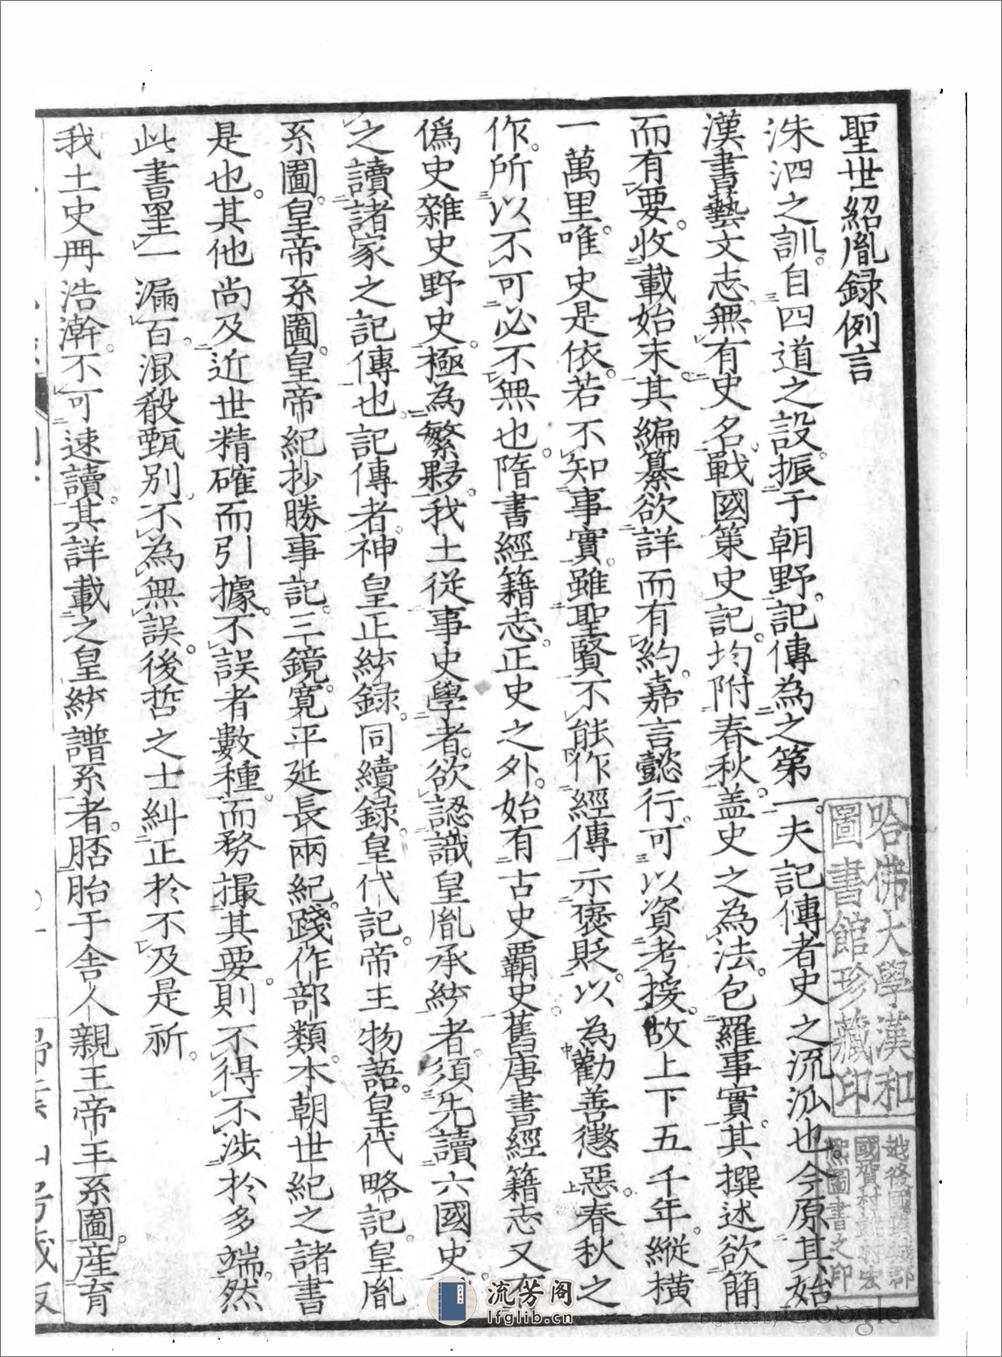 聖世紹胤録例言
洙泗之訓。自四道之設。振于朝野。記傳為之第一。夫記傳者史之流泒也。今原其始
漢書藝文志。無有史名。戰國策史記。均附春秋。盖史之為法。包羅事實。其撰述欲簡
而有要。收載始末。其編纂欲詳而有約。嘉言懿行。可以資考援。故上下五千年。縱横
一萬里。唯史是依。若不知事實。雖聖賢不能作經傳示褒貶。以為勸善懲惡。春秋之
作。所以不可必不無也。隋書經籍志。正史之外。始有古史覇史。舊唐書經籍志又
偽史雜史野史。極為繁夥。我土從事史學者。欲認識皇胤承統者。須先讀六國史。
之讀諸家之記傳也。記傳者神皇正統録。同續録。皇代記。帝王物語。皇代略記。皇胤
系圖。皇帝系圖。皇帝紀抄。勝事記。三鏡。寛平延長兩紀。踐作部類。本朝世紀之諸書
是也。其他尚及近世精確而引據。不誤者數種。而務撮其要。則不得不涉於多端。然
此書罣一漏百。混殽甄別。不為無誤。後哲之士糾正於不及是祈。
我土史冊浩瀚。不可速讀。其詳載之皇統譜系者。胚胎于舎人親王帝王系圖。産育
哈佛大學漢和
圖書館珍藏印
圖書之印
流芳閣
lfglib.cn
Google